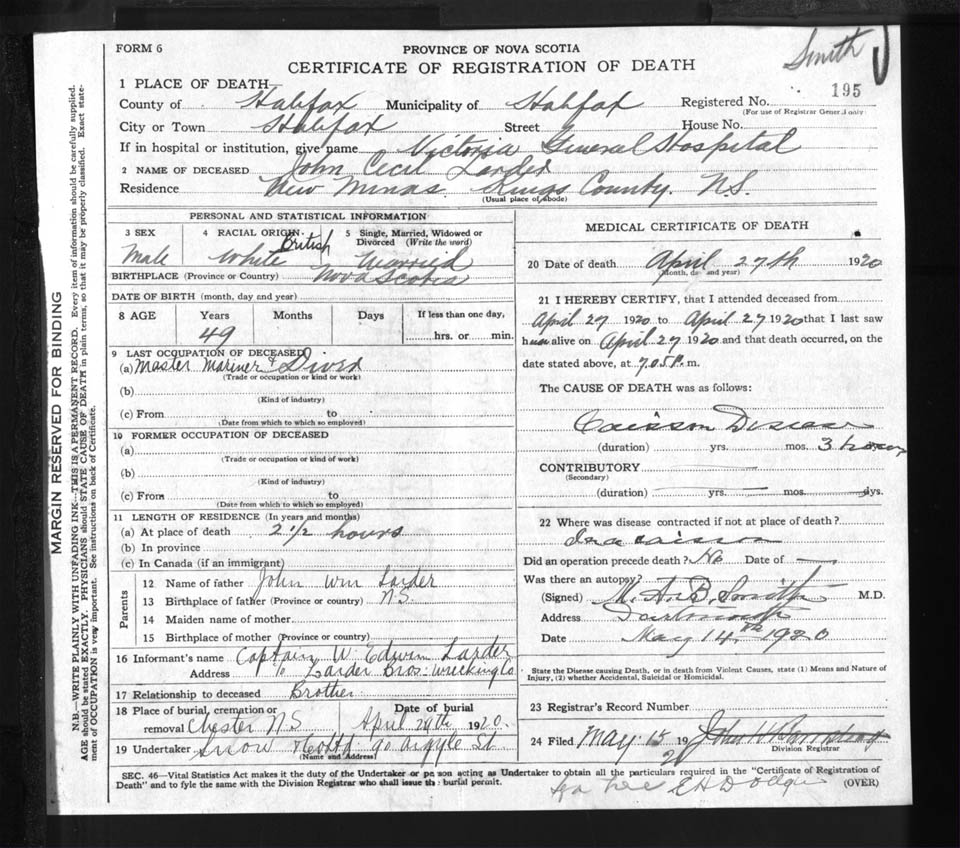 Smith
FORM 6
PROVINCE OF NOVA SCOTIA
CERTIFICATE OF REGISTRATION OF DEATH
195
1 PLACE OF DEATH
County of Halifax Municipality of Halifax Registered No.
(For use of Registrar General only)
City or Town Halifax Street House No.
If in hospital or institution, give name Victoria General Hospital
2 NAME OF DECEASED John Cecil Larder
Residence New Minas Kings County. N.S.
(Usual place of abode)
PERSONAL AND STATISTICAL INFORMATION
3 SEX 4 RACIAL ORIGIN 5 Single, Married, Widowed or Divorced (Write the word)
Male White British Married
BIRTHPLACE (Province or Country) Nova Scotia
DATE OF BIRTH (month, day and year)
8 AGE Years Months Days If less than one day,
49 hrs. or min.
9 LAST OCCUPATION OF DECEASED
(a) Master Mariner & Diver
(Trade or occupation or kind or work)
(b)
(Kind of industry)
(c) From to
(Date from which to which so employed)
10 FORMER OCCUPATION OF DECEASED
(a)
(Trade or occupation or kind of work)
(b)
(Kind of industry)
(c) From to
(Date from which to which so employed)
11 LENGTH OF RESIDENCE (In years and months)
(a) At place of death 2 1/2 hours
(b) In province
(c) In Canada (if an immigrant)
Parents
12 Name of father John Wm Larder
13 Birthplace of father (Province or country) N.S.
14 Maiden name of mother
15 Birthplace of mother (Province or country)
16 Informant's name Captain W. Edwin Larder
Address c/o Larder Bros. Wrecking Co
17 Relationship to deceased Brother
18 Place of burial, cremation or removal Chester N.S Date of burial April 1920.
19 Undertaker Snow 90 Argyle St
(Name and Address)
MEDICAL CERTIFICATE OF DEATH
20 Date of death April 27th 1920
(Month, day and year)
21 I HEREBY CERTIFY, that I attended deceased from
April 27 1920 to April 27 1920 that I last saw
him alive on April 27 1920 and that death occurred, on the
date stated above, at 7.05 P. m.
The CAUSE OF DEATH was as follows:
Caisson Disease
(duration) yrs. mos. 3 hours
CONTRIBUTORY
(Secondary)
(duration) yrs. mos. dys.
22 Where was disease contracted if not at place of death?
In a caisson
Did an operation precede death? No Date of
Was there an autopsy?
(Signed) M. A. B. Smith M.D.
Address Dartmouth
Date May 14th 1920
State the Disease causing Death, or in death from Violent Causes, state (1) Means and Nature of Injury, (2) whether Accidental, Suicidal or Homicidal.
23 Registrar's Record Number
24 Filed May 15 1920 John
Division Registrar
SEC. 46—Vital Statistics Act makes it the duty of the Undertaker or person acting as Undertaker to obtain all the particulars required in the "Certificate of Registration of
Death" and to fyle the same with the Division Registrar who shall issue the burial permit.
(OVER)
MARGIN RESERVED FOR BINDING
N.B.—WRITE PLAINLY WITH UNFADING INK—THIS IS A PERMANENT RECORD. Every item of information should be carefully supplied.
AGE should be stated EXACTLY. PHYSICIANS should STATE CAUSE OF DEATH in plain terms, so that it may be properly classified. Exact statement of OCCUPATION is very important. See instructions on back of Certificate.